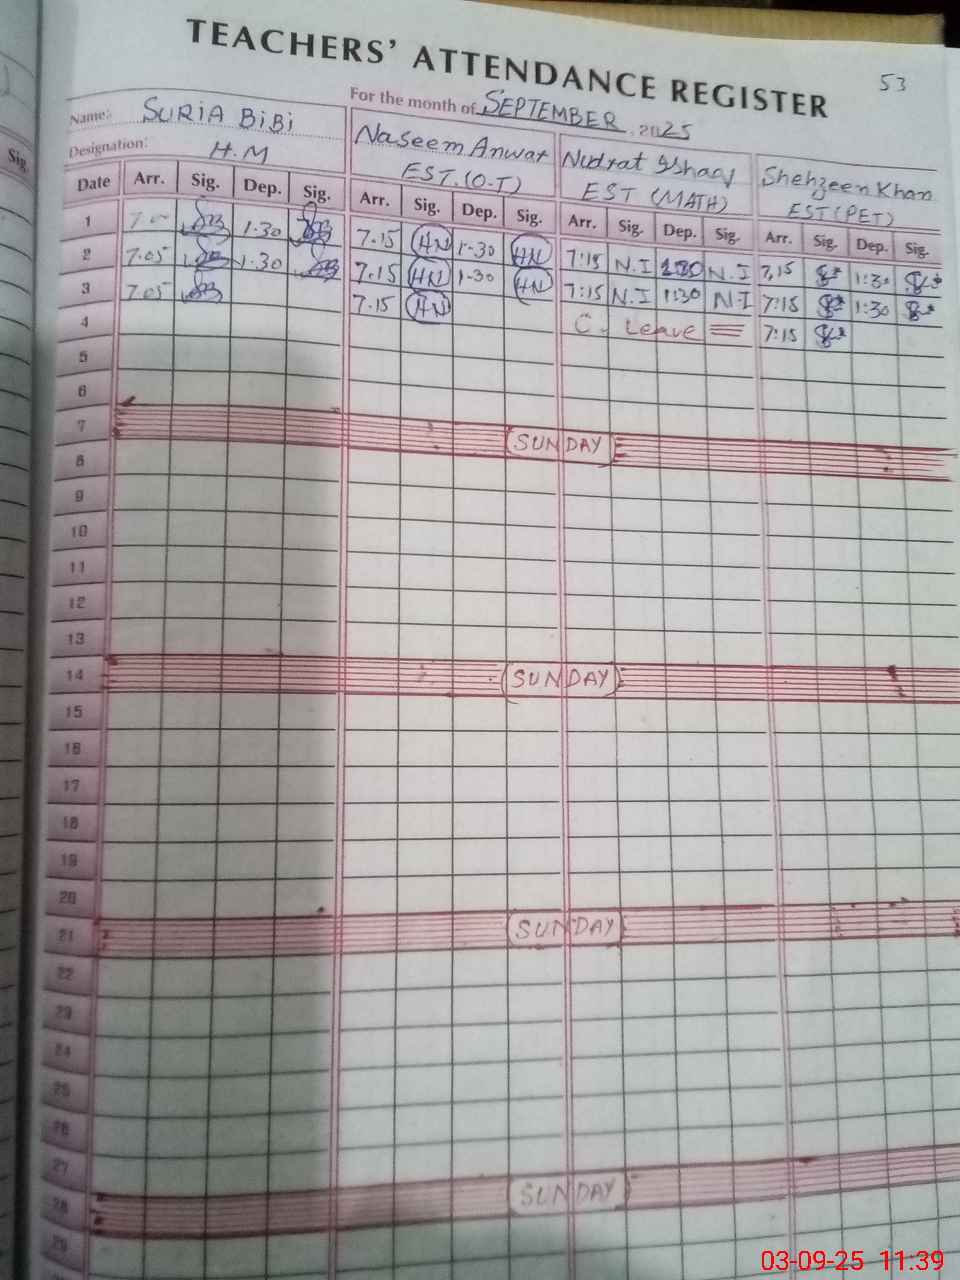 TEACHERS' ATTENDANCE REGISTER
53
For the month of SEPTEMBER, 2025
Name: SURIA BiBi
Naseem Anwar
Nudrat Ishaq
Shehzeen Khan
Designation: H.M
EST.(O-T)
EST (MATH)
EST (PET)
Date Arr. Sig. Dep. Sig. Arr. Sig. Dep. Sig. Arr. Sig. Dep. Sig. Arr. Sig. Dep. Sig.
1 1-30 7.15 HN 1-30 HN 7:15 N.I 1:30 N.I 7,15 1:30
2 7.05 1:30 7.15 HN 1-30 HN 7:15 N.I 1:30 N.I 7:15 1:30
3 7.05 7.15 HN C. Leave 7:15
4
5
6
7 SUNDAY
8
9
10
11
12
13
14 SUNDAY
15
16
17
18
19
20
21 SUNDAY
22
23
24
25
26
27
28 SUNDAY
29
Sig.
03-09-25 11:39